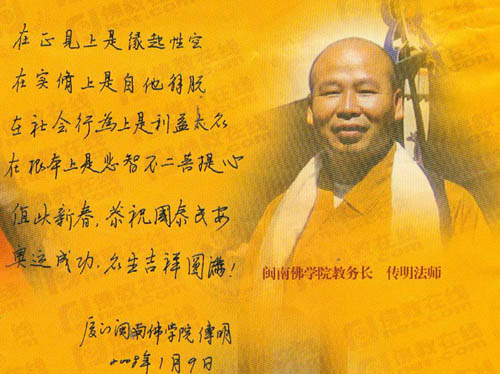 在正见上是缘起性空
在实修上是自他解脱
在社会行為上是利益大众
在根本上是悲智不二菩提心
值此新春，恭祝國泰民安
奥运成功．众生吉祥圆满！
厦门闽南佛学院 傳明
2008年1月9日
闽南佛学院教务长 传明法师